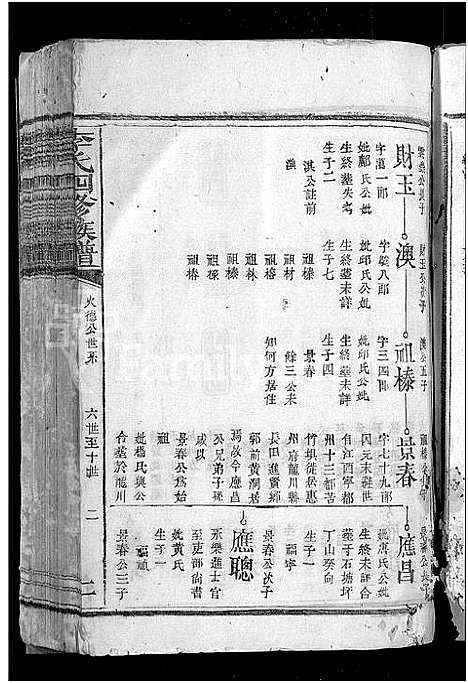 李氏四修族譜
火德公世系
六世至十世
二
財玉
澳
祖榛
景春
應昌
財玉公次子
澳公五子
字萬一郎
妣鄺氏公妣
生終墓失考
生子二
淇公註前
澳
字縈八郎
妣邱氏公妣
生終墓未詳
生子七
祖榛
祖村
祖林
祖榛
祖祿
字三四郎
妣邱氏公妣
生終墓未詳
生子四
景春
餘三公未
知何方居住
字七十九郎
因元末難世
自江西寧都
州十三都苦
竹垻徙居惠
州府龍川縣
長田進賢鄉
郭前黃潤居
焉故今應昌
公兄弟子孫
咸以
景春公為始
妣楊氏與公
合墓於龍川
妣唐氏公妣
生終未詳合
墓于石塘坪
丁山癸向
生子一
福寧
應聰
景春公次子
永樂進士官
至吏部尚書
妣黃氏
生子一
福禎
景春公三子